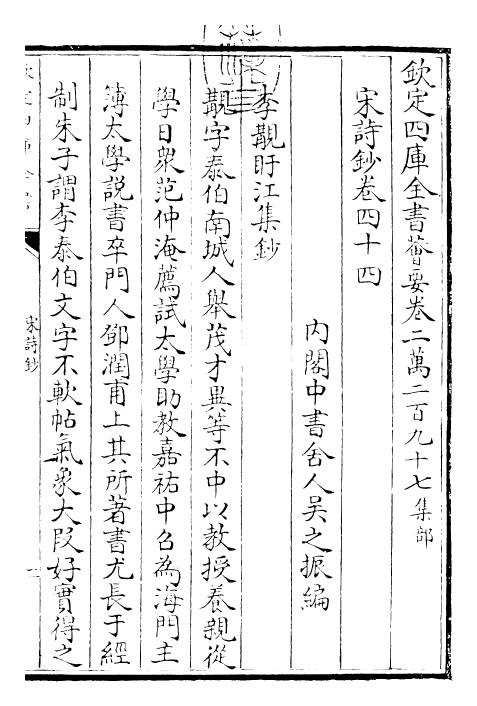 欽定四庫全書薈要卷二萬二百九十七集部
宋詩鈔卷四十四
內閣中書舍人吳之振編
李覯盱江集鈔
覯字泰伯南城人舉茂才異等不中以教授養親從
學日衆范仲淹薦試太學助教嘉祐中召為海門主
簿太學說書卒門人鄧潤甫上其所著書尤長于經
制朱子謂李泰伯文字不軟帖氣象大段好實得之
宋詩鈔